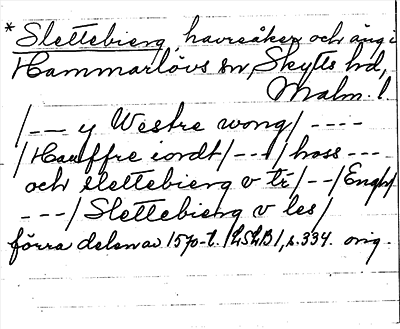 * Slettebierg, havreåker och äng i
Hammarlövs sn, Skytts hd,
Malm. l.
/--- y Westre wong/ ----
/Hauffre iordt/---/hoss ---
och slettebierg v tr/--/Engh/
---/Slettebierg v les/
förra delen av 1570-t. /LSLB/, s. 334. orig.